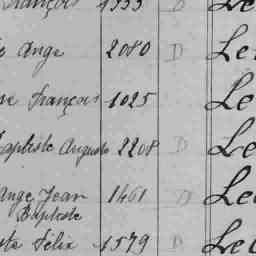 François 1333 D Le
Ange 2080 D Le
François 1025 Le
Baptiste Auguste 2208 D Le
Ange Jean 1461 D Le
Baptiste
Félix 1579 D Le